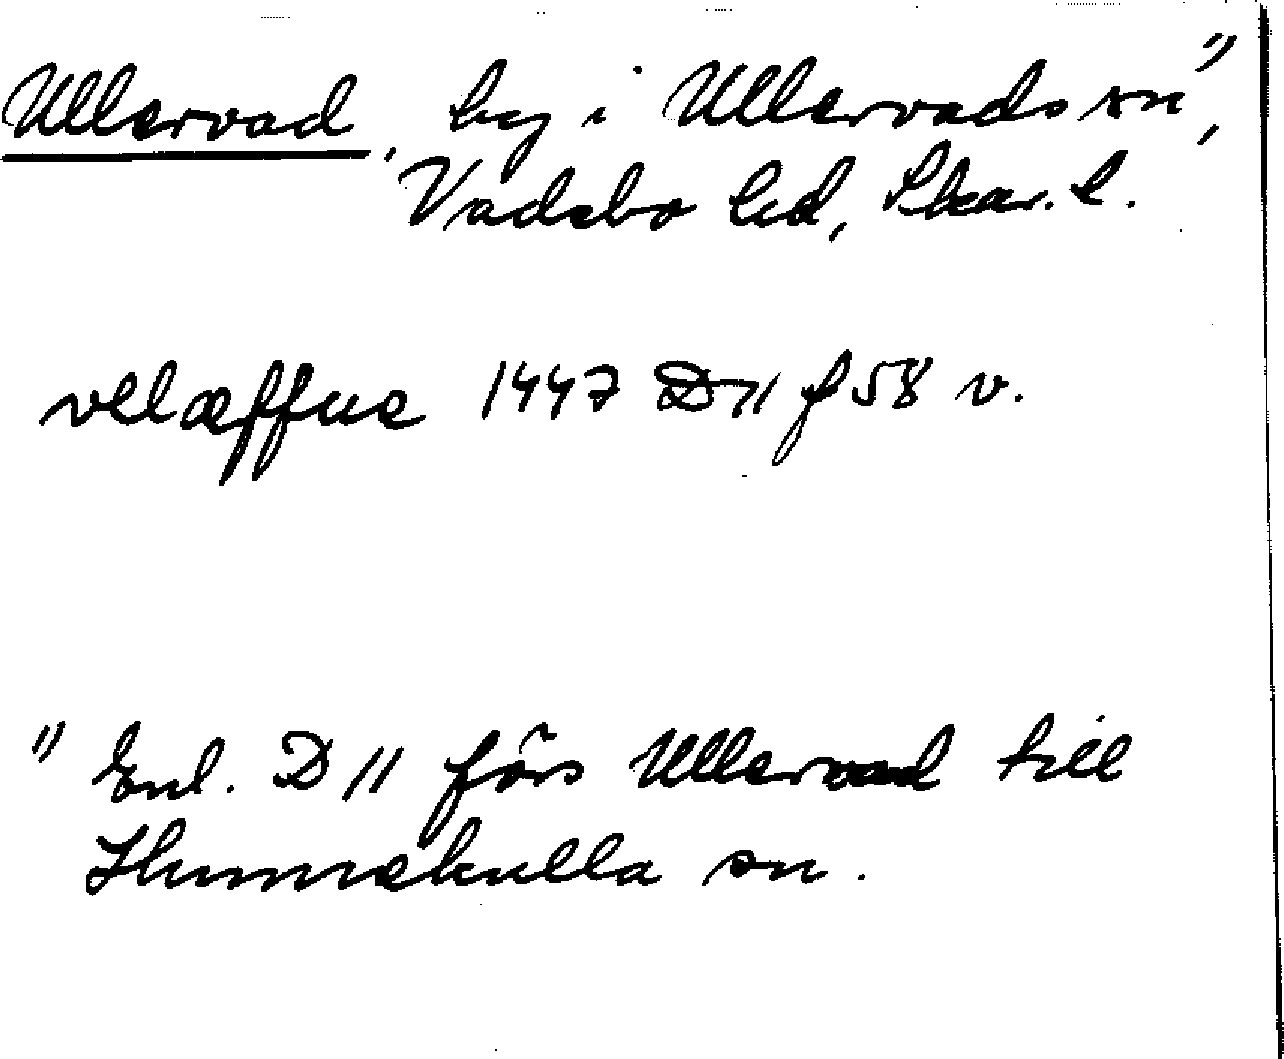 Ullervad, by i Ullervads sn",
Vadsbo hd, Skar. l.
vllæffue 1447 D11 f 58 v.
" Enl. D11 förs Ullervad till
Hunnekulla sn.